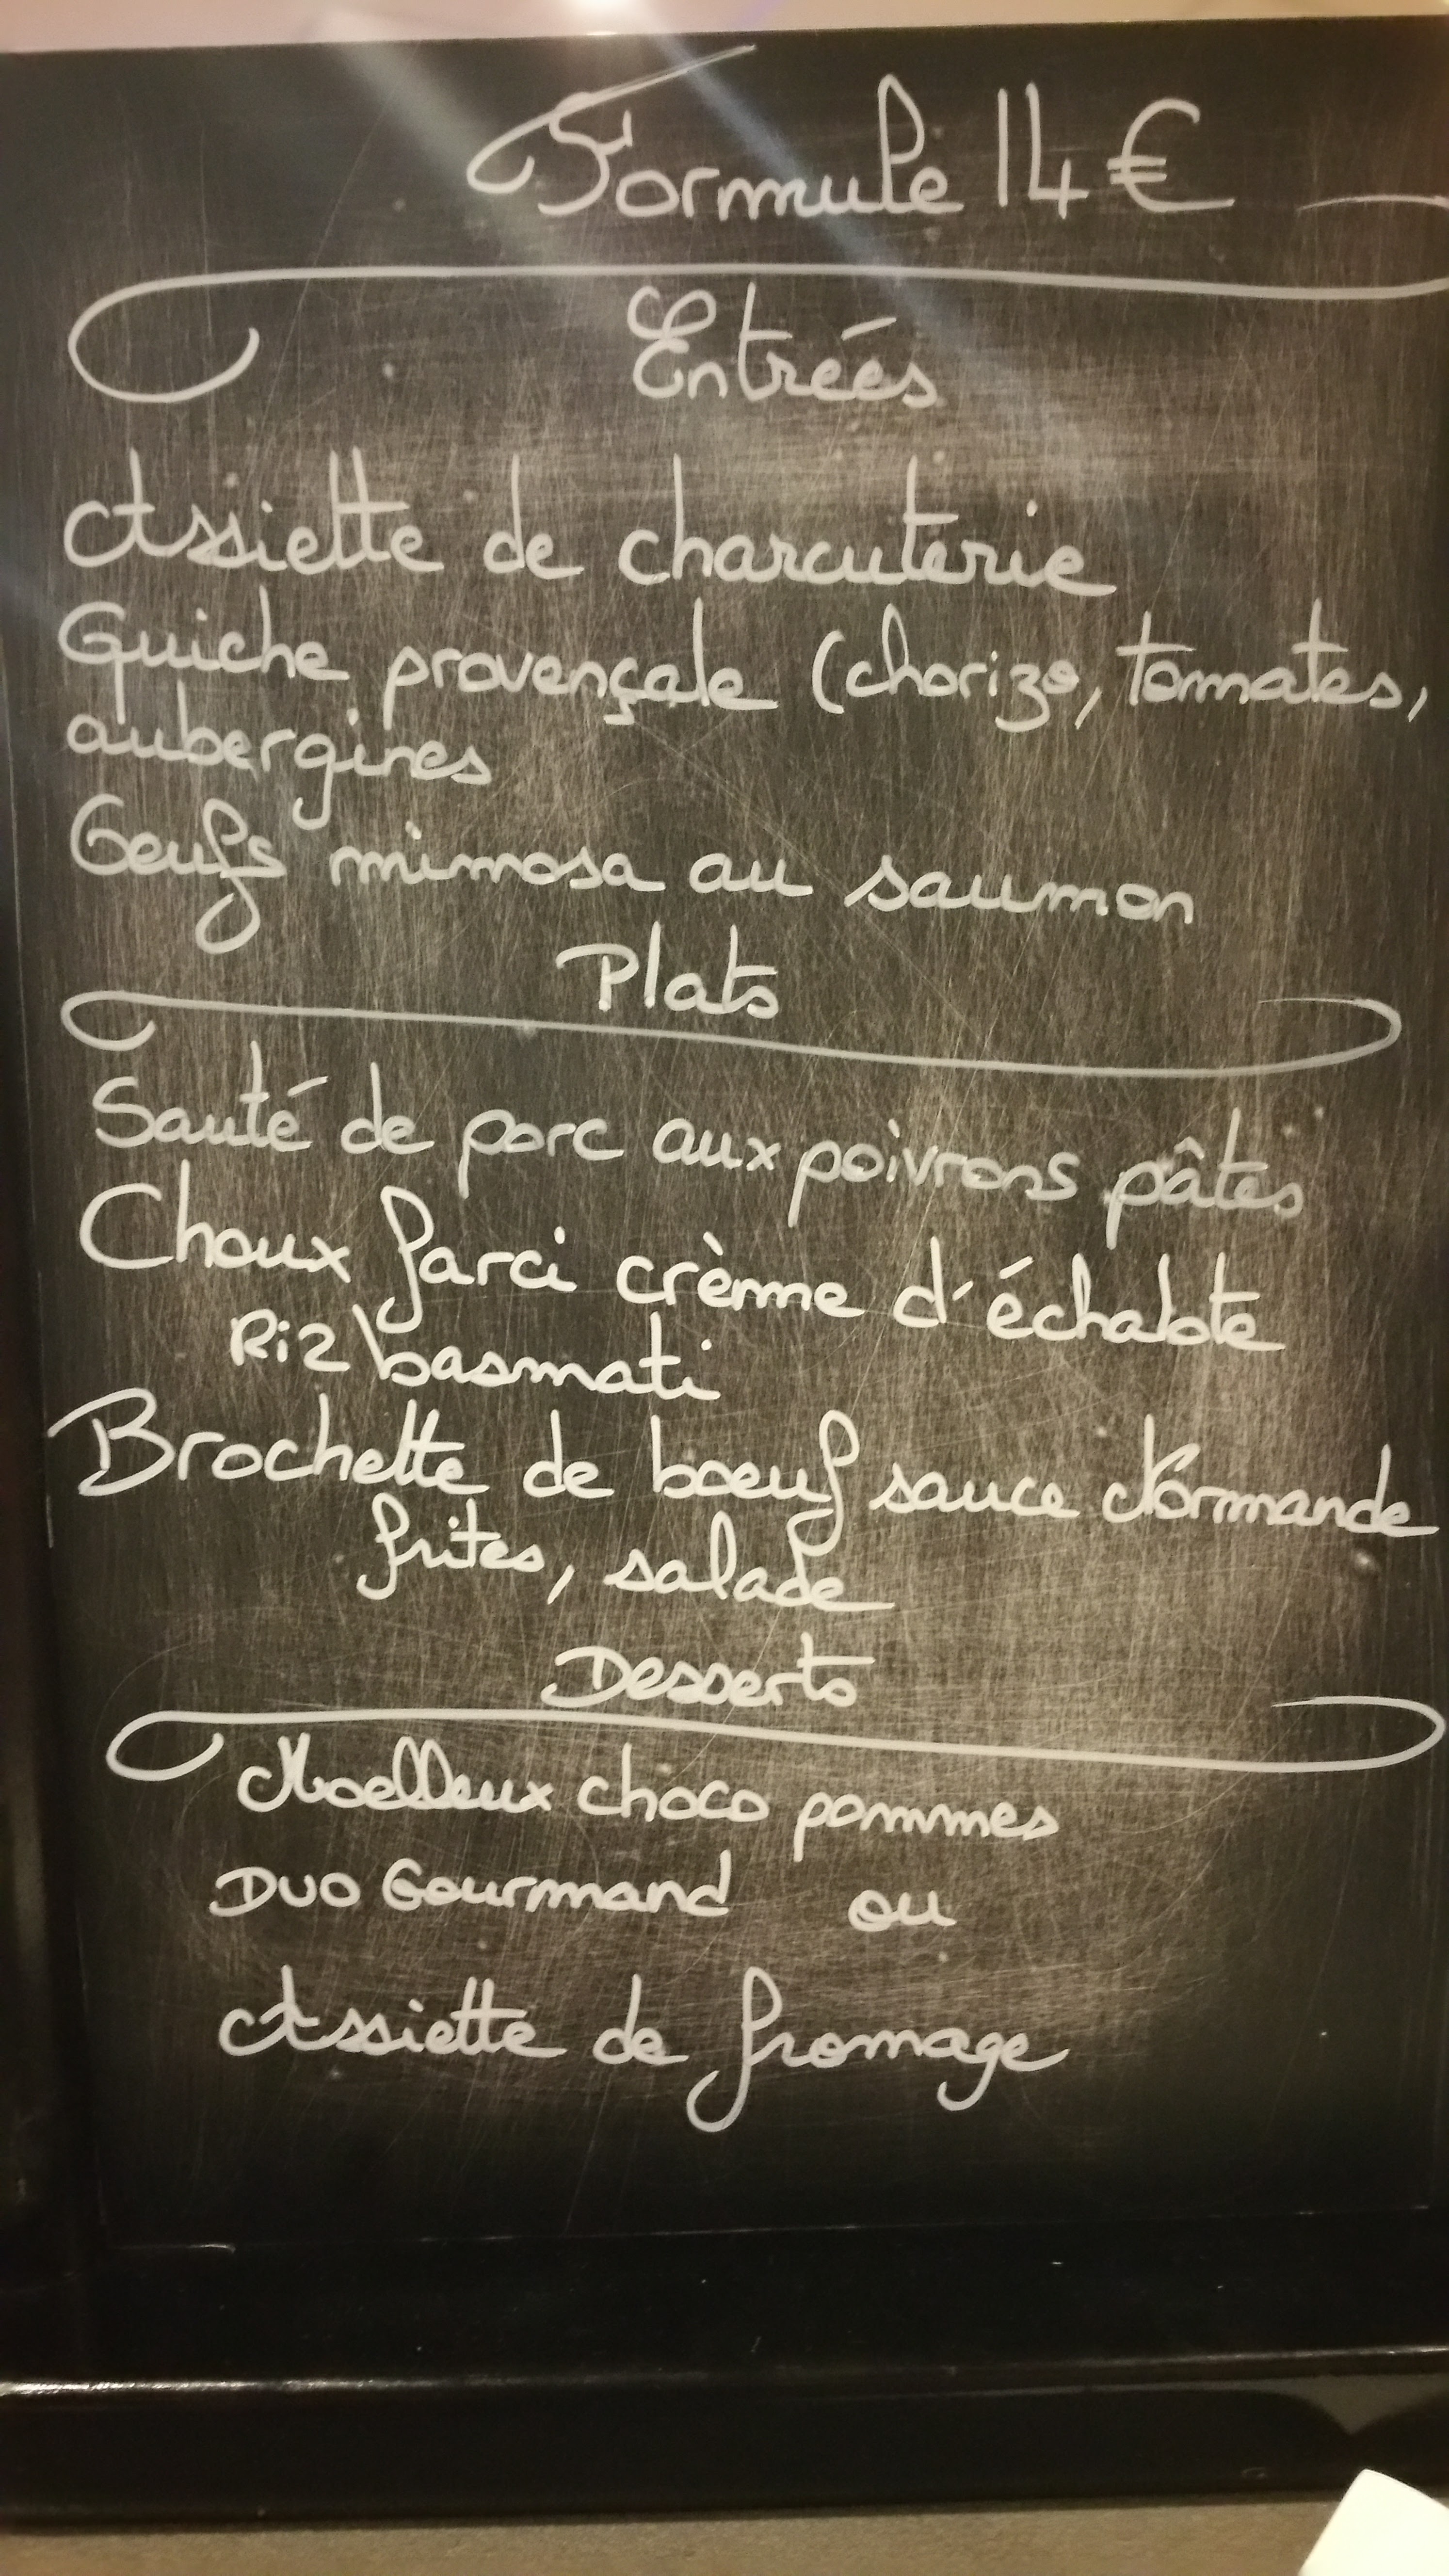 Formule 14€
Entrées
Assiette de charcuterie
Quiche provençale (chorizo, tomates,
aubergines
Oeufs mimosa au saumon
Plats
Sauté de porc aux poivrons pâtes
Choux farci crème d'échalote
Riz basmati
Brochette de boeuf sauce Normande
frites, salade
Desserts
Moelleux choco pommes
Duo Gourmand ou
Assiette de fromage